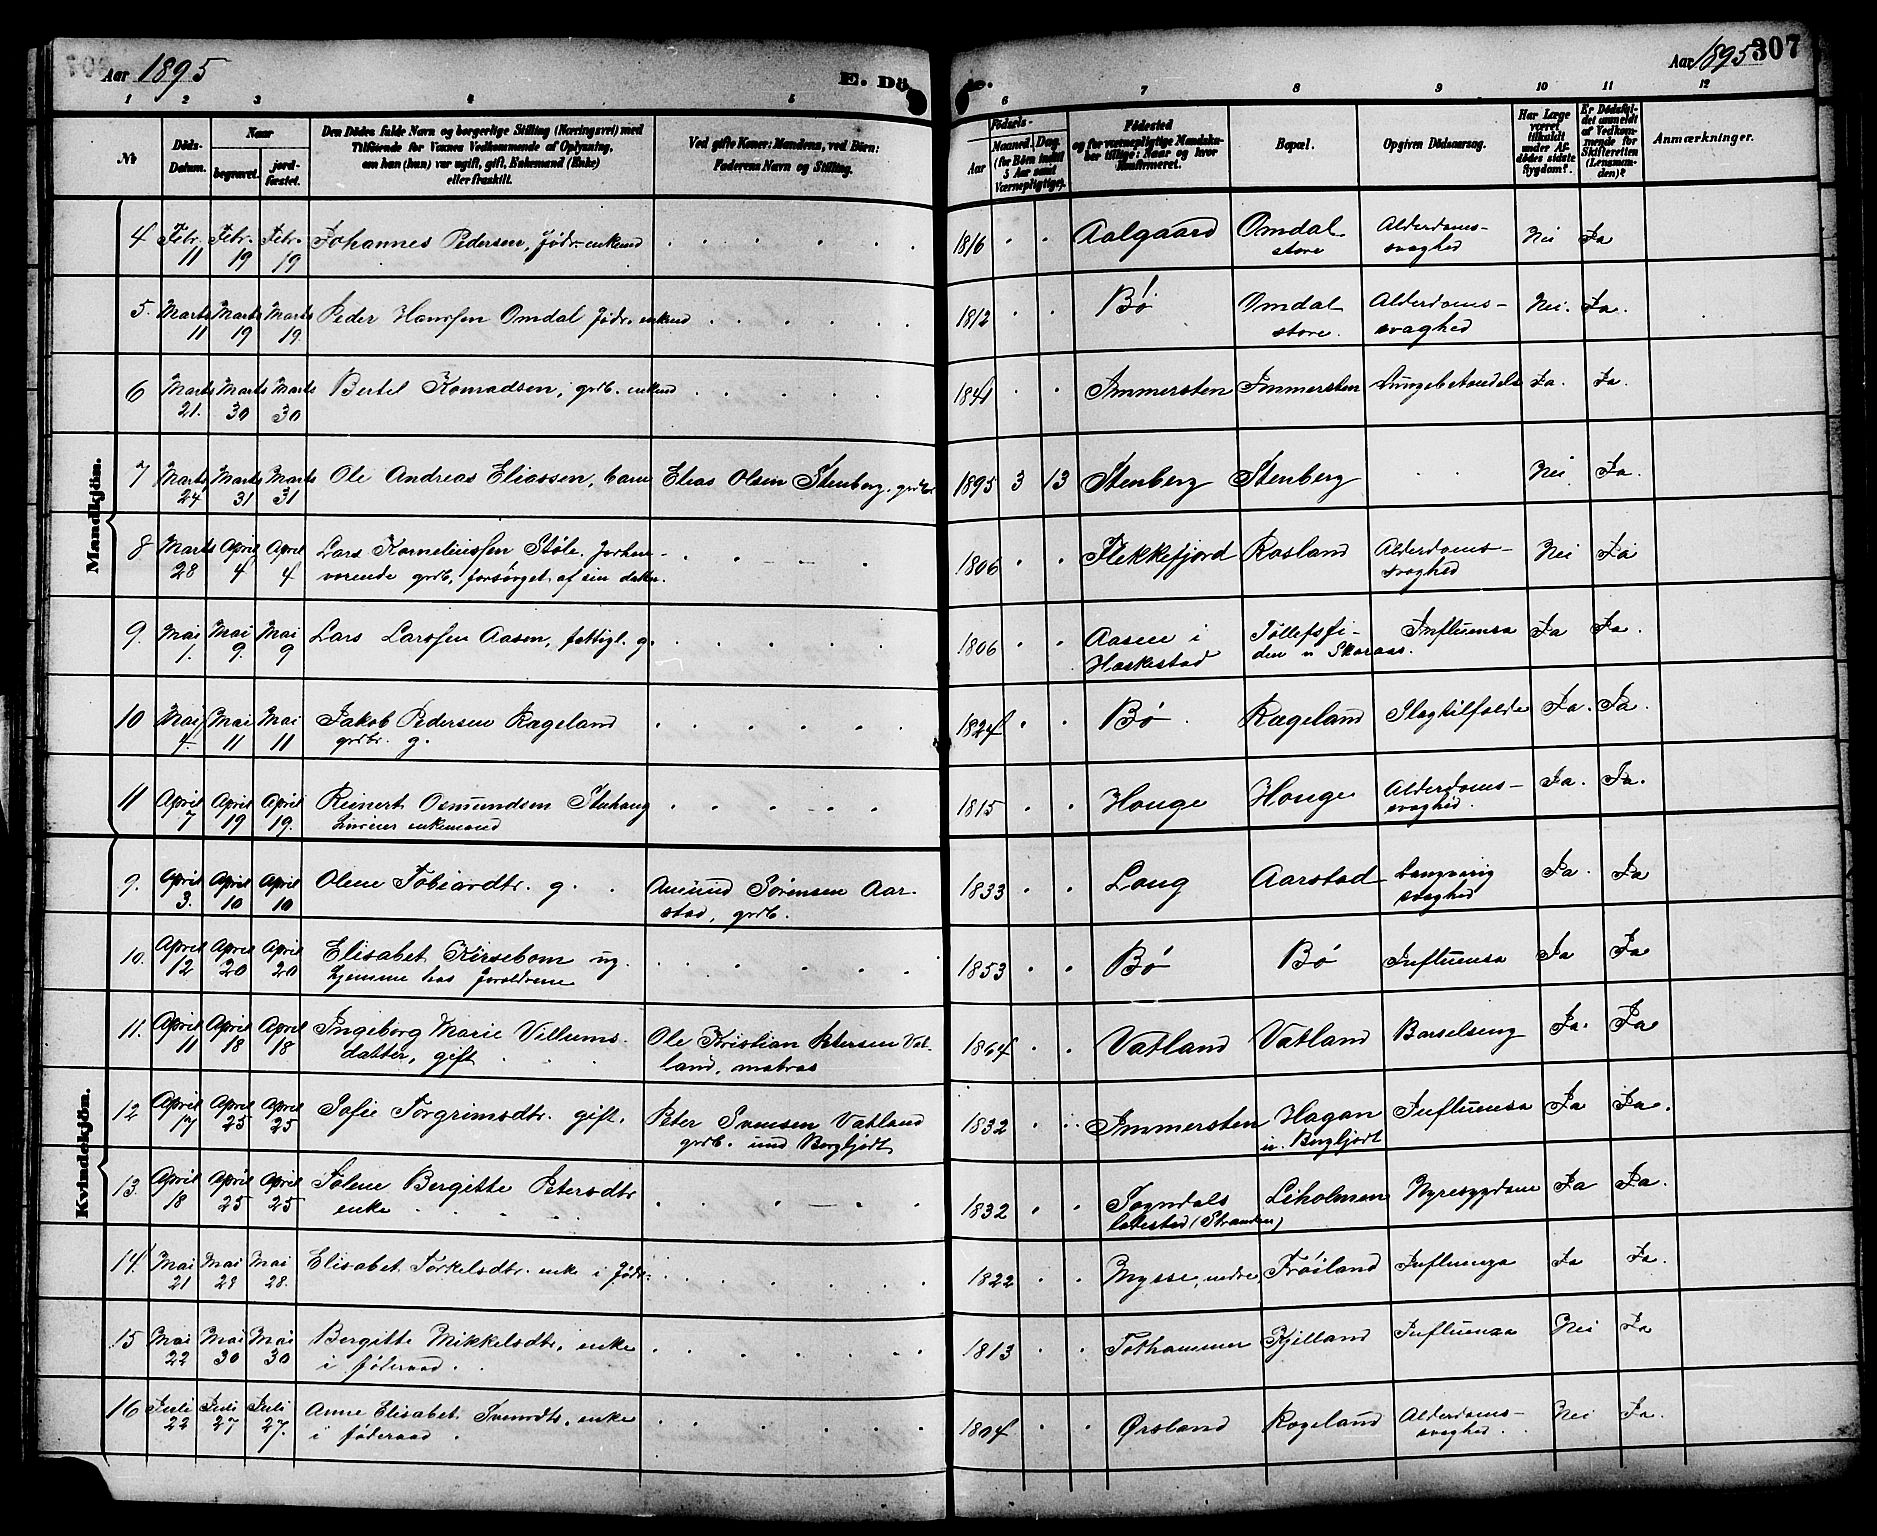 Aar 1895
E. Dö
e.
Aar 1895
307
1 2 3 4 5 6 7 8 9 10 11 12
No
Döds-Datum.
Naar
begravet.
jord-fæstet.
Den Dödes fulde Navn og borgerlige Stilling (Næringsvei) med
Tilföiende for Voxnes Vedkommende af Oplysning,
om han (hun) var ugift, gift, Enkemand (Enke)
eller fraskilt.
Ved gifte Koner: Mandens, ved Börn:
Faderens Navn og Stilling.
Födsels-
Aar
Maaned. Dag
(for Börn indtil
5 Aar samt
Værnepligtige).
Födested
og for værnepligtige Mandska-
ber tillige: Naar og hvor
Konfirmeret.
Bopæl.
Opgiven Dödsaarsag.
Har Læge
været
tilkaldt
under Af-
dödes sidste
Sygdom?
Er Dödsfal-
det anmeldt
af Vedkom-
mende for
Skifteretten
(Lensman-
den)?
Anmærkninger.
Mandkjön.
4 Febr. 11 Febr. 19 Febr. 19 Johannes Pedersen, føde-enkemd 1816 Aalgaard Omdal store Alderdoms-svaghed Nei Ja
5. Marts 11 Marts 19 Marts 19. Peder Hanssen Omdal føder. enkemd 1812 Bø Omdal store. Alderdoms-svaghed Nei. Ja.
6 Marts 21. Marts 30 Marts 30 Bertel Konradsen, grdb. enkemd 1841 Immersten Immersten Lungebetændels Ja. Ja.
7 Marts 24 Marts 31 Marts 31 Ole Andreas Eliassen, barn Elias Olsen Stenberg. grdbr 1895 3 13 Stenberg Stenberg Nei Ja.
8 Marts 28 April 4 April 4 Lars Korneliussen Støle. forhen-
værende grdb, forsørget af sin datter. 1806 Flekkefjord Rosland Alderdoms-svaghed Nei Ja
9. Mai 1. Mai 9. Mai 9 Lars Larssen Aasen, fattigl. g. 1806 Aasen i Heskestad Tollefsfi-
den u Skaraas. Influensa Ja Ja.
10 Mai 4. Mai 11 Mai 11 Jakob Pedersen Rægeland
grdbr. g. 1824 Bø Rægeland Slagtilfælde Ja. Ja.
11 April 7 April 19 April 19. Reinert Osmundsen
enkemand 1815 Houge Houge Alderdoms-svaghed Ja. Ja.
Kvindekjön.
9. April 3. April 10 April 10 Olene Tobiasdtr. g. Amund Sørensen Aar-
stad, grdb. 1833 Long Aarstad Langvarig svaghed Ja. Ja
10. April 12 April 20 April 20 Elisabet Kirsebom ug.
hjemme hos forældrene 1853 Bø Bø Influensa Ja Ja
11. April 11 April 18 April 18 Ingeborg Marie Villums-
datter, gift Ole Kristian Petersen Vat-
land, matros 1864 Vatland Vatland Barselseng Ja. Ja
12 April 17 April 25 April 25 Sofie Torgrimsdtr. gift. Peter Svensen Vatland
grdb. und Bergljodt 1832 Immersten Hagan
u. Bergljodt Influensa Ja Ja.
13. April 18 April 25 April 25 Bergitte Petersdtr
enke 1832 Sogndals
ladested (Stranden) Liholmen Nyresygdom Ja Ja.
14. Mai 21 Mai 28 Mai 28. Elisabet Torkelsdtr. enke i føder. 1822 Mysse, nedre Frøiland Influensa Ja Ja.
15 Mai 22 Mai 30 Mai 30 Bergitte Mikkelsdtr, enke
i føderaad. 1813 Tothammer Kjelland Influensa Nei Ja
16 Juli 22 Juli 27 Juli 27. Anne Elisabet Svensdtr, enke
i føderaad. 1804 Ørsland Rægeland Alderdoms-svaghed. Nei Ja.